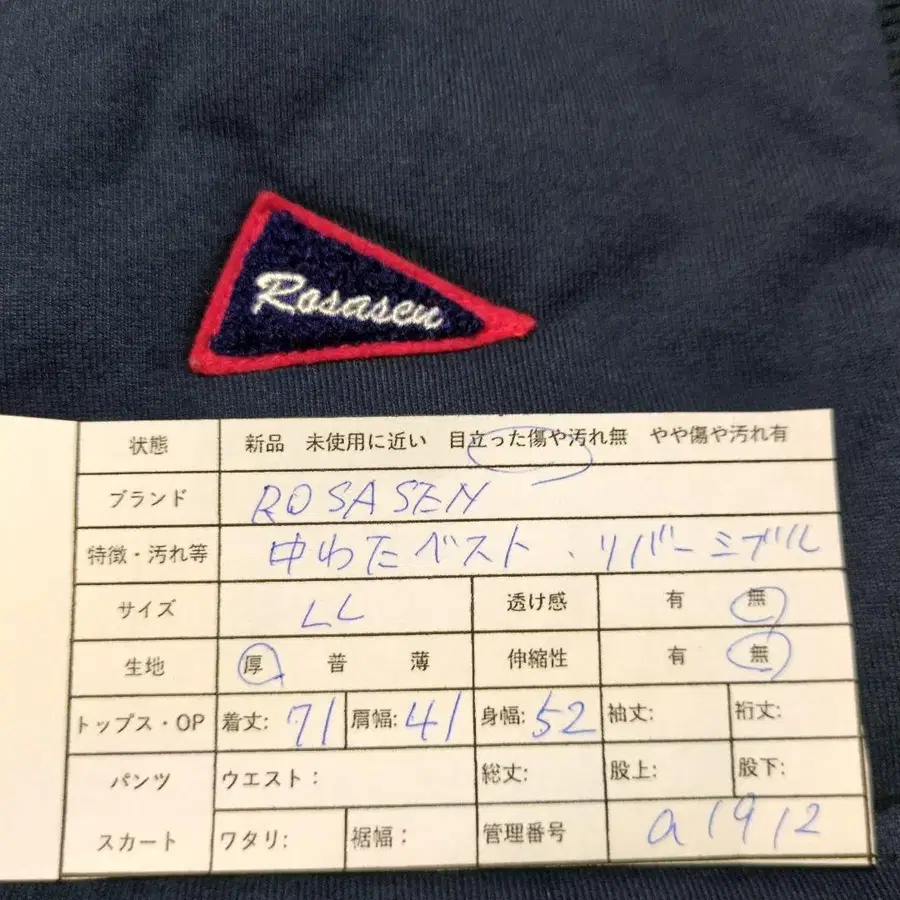 Rosasen
状態 新品 未使用に近い 目立った傷や汚れ無 やや傷や汚れ有
ブランド ROSASEN
特徴・汚れ等 中わたベスト、リバーシブル
サイズ LL 透け感 有 無
生地 厚 普 薄 伸縮性 有 無
トップス・OP 着丈: 71 肩幅: 41 身幅: 52 袖丈: 裄丈:
パンツ ウエスト: 総丈: 股上: 股下:
スカート ワタリ: 裾幅: 管理番号 a1912